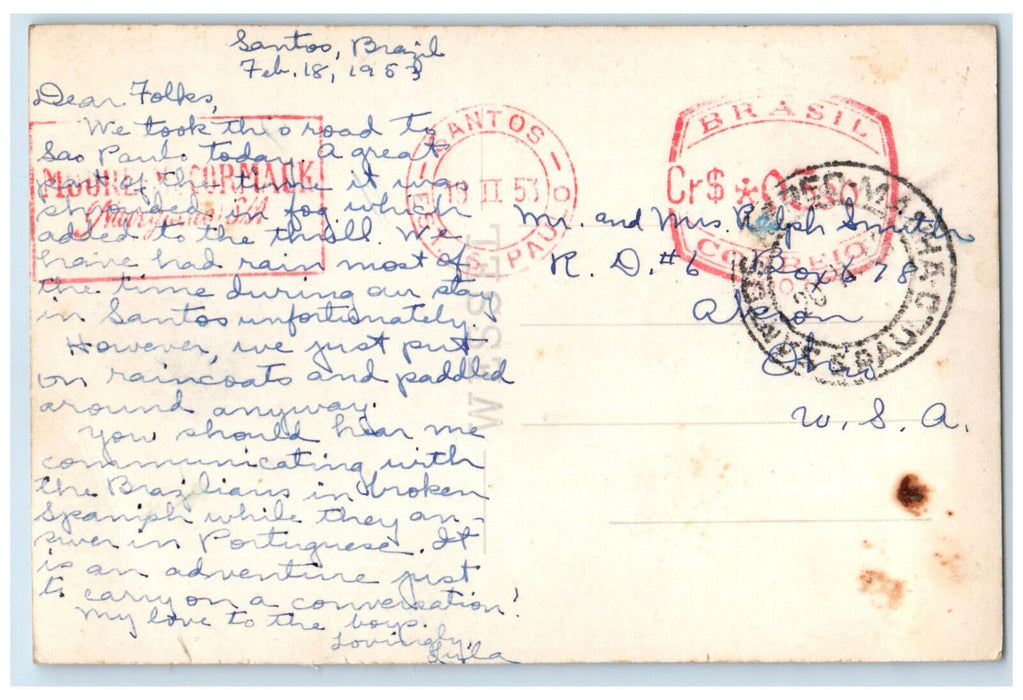 Santos, Brazil
Feb. 18, 1953
Dear Folks,
We took this road to
Sao Paulo today. A great
part of the time it was
shrouded in fog which
added to the thrill. We
have had rain most of
the time during our stay
in Santos unfortunately.
However, we just put
on raincoats and paddled
around anyway.
You should hear me
communicating with
the Brazilians in broken
Spanish while they an-
swer in Portuguese. It
is an adventure just
to carry on a conversation!
My love to the boys.
Lovingly,
Lula
MOORE McCORMACK
(Navegação) S/A
SANTOS
19 II 53
S. PAULO
BRASIL
Cr$
CORREIO
Mr. and Mrs. Ralph Smith
R. D. #6 Box 678
Akron
Ohio
U. S. A.
WESSEL